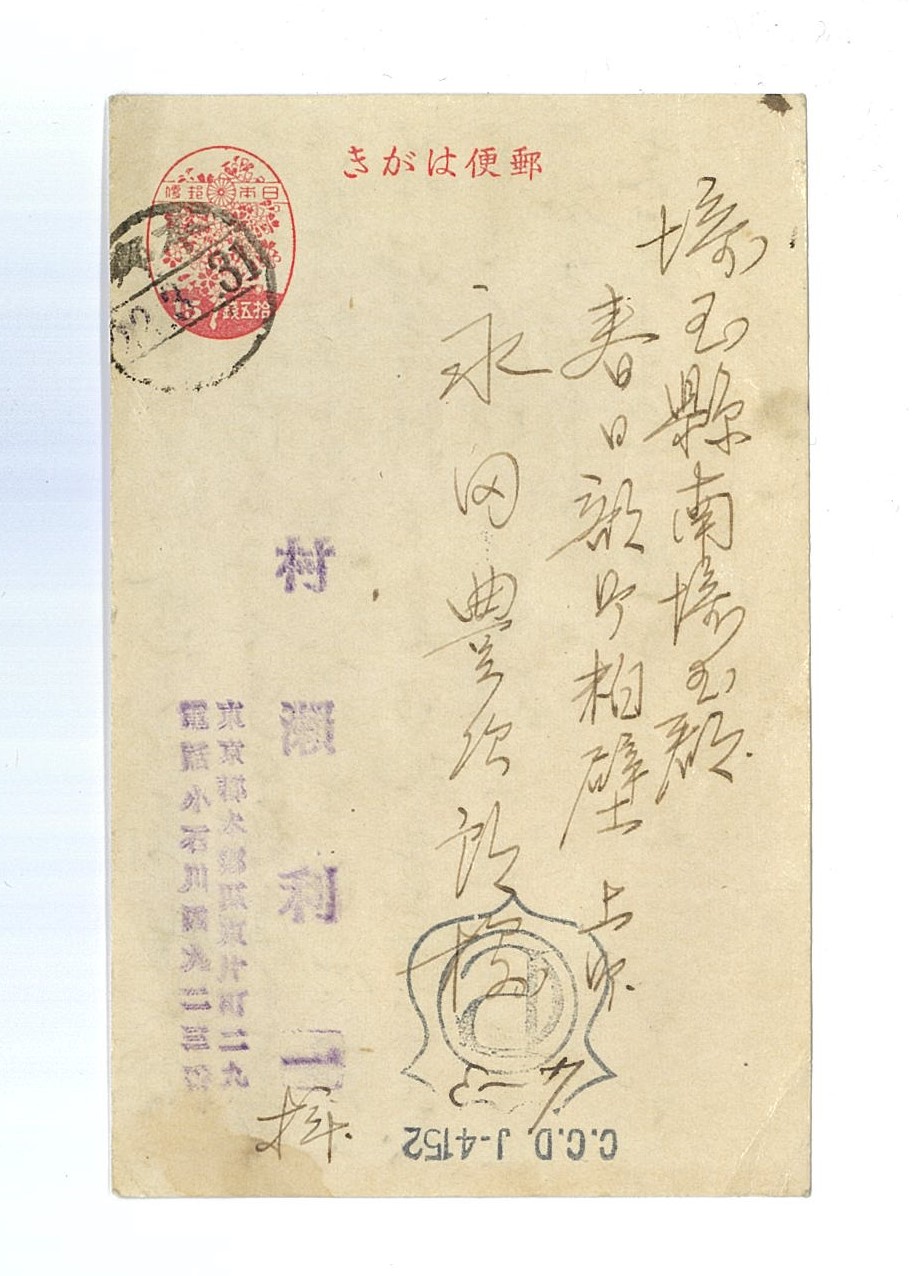 郵便はがき
日本郵便
拾五銭
15
本郷
22.3.31
埼玉縣南埼玉郡
春日部町粕壁 上町
永田豊次郎様
村瀬利一
拝
東京都本郷區東片町二九
電話小石川 三
C.C.D. J-4152